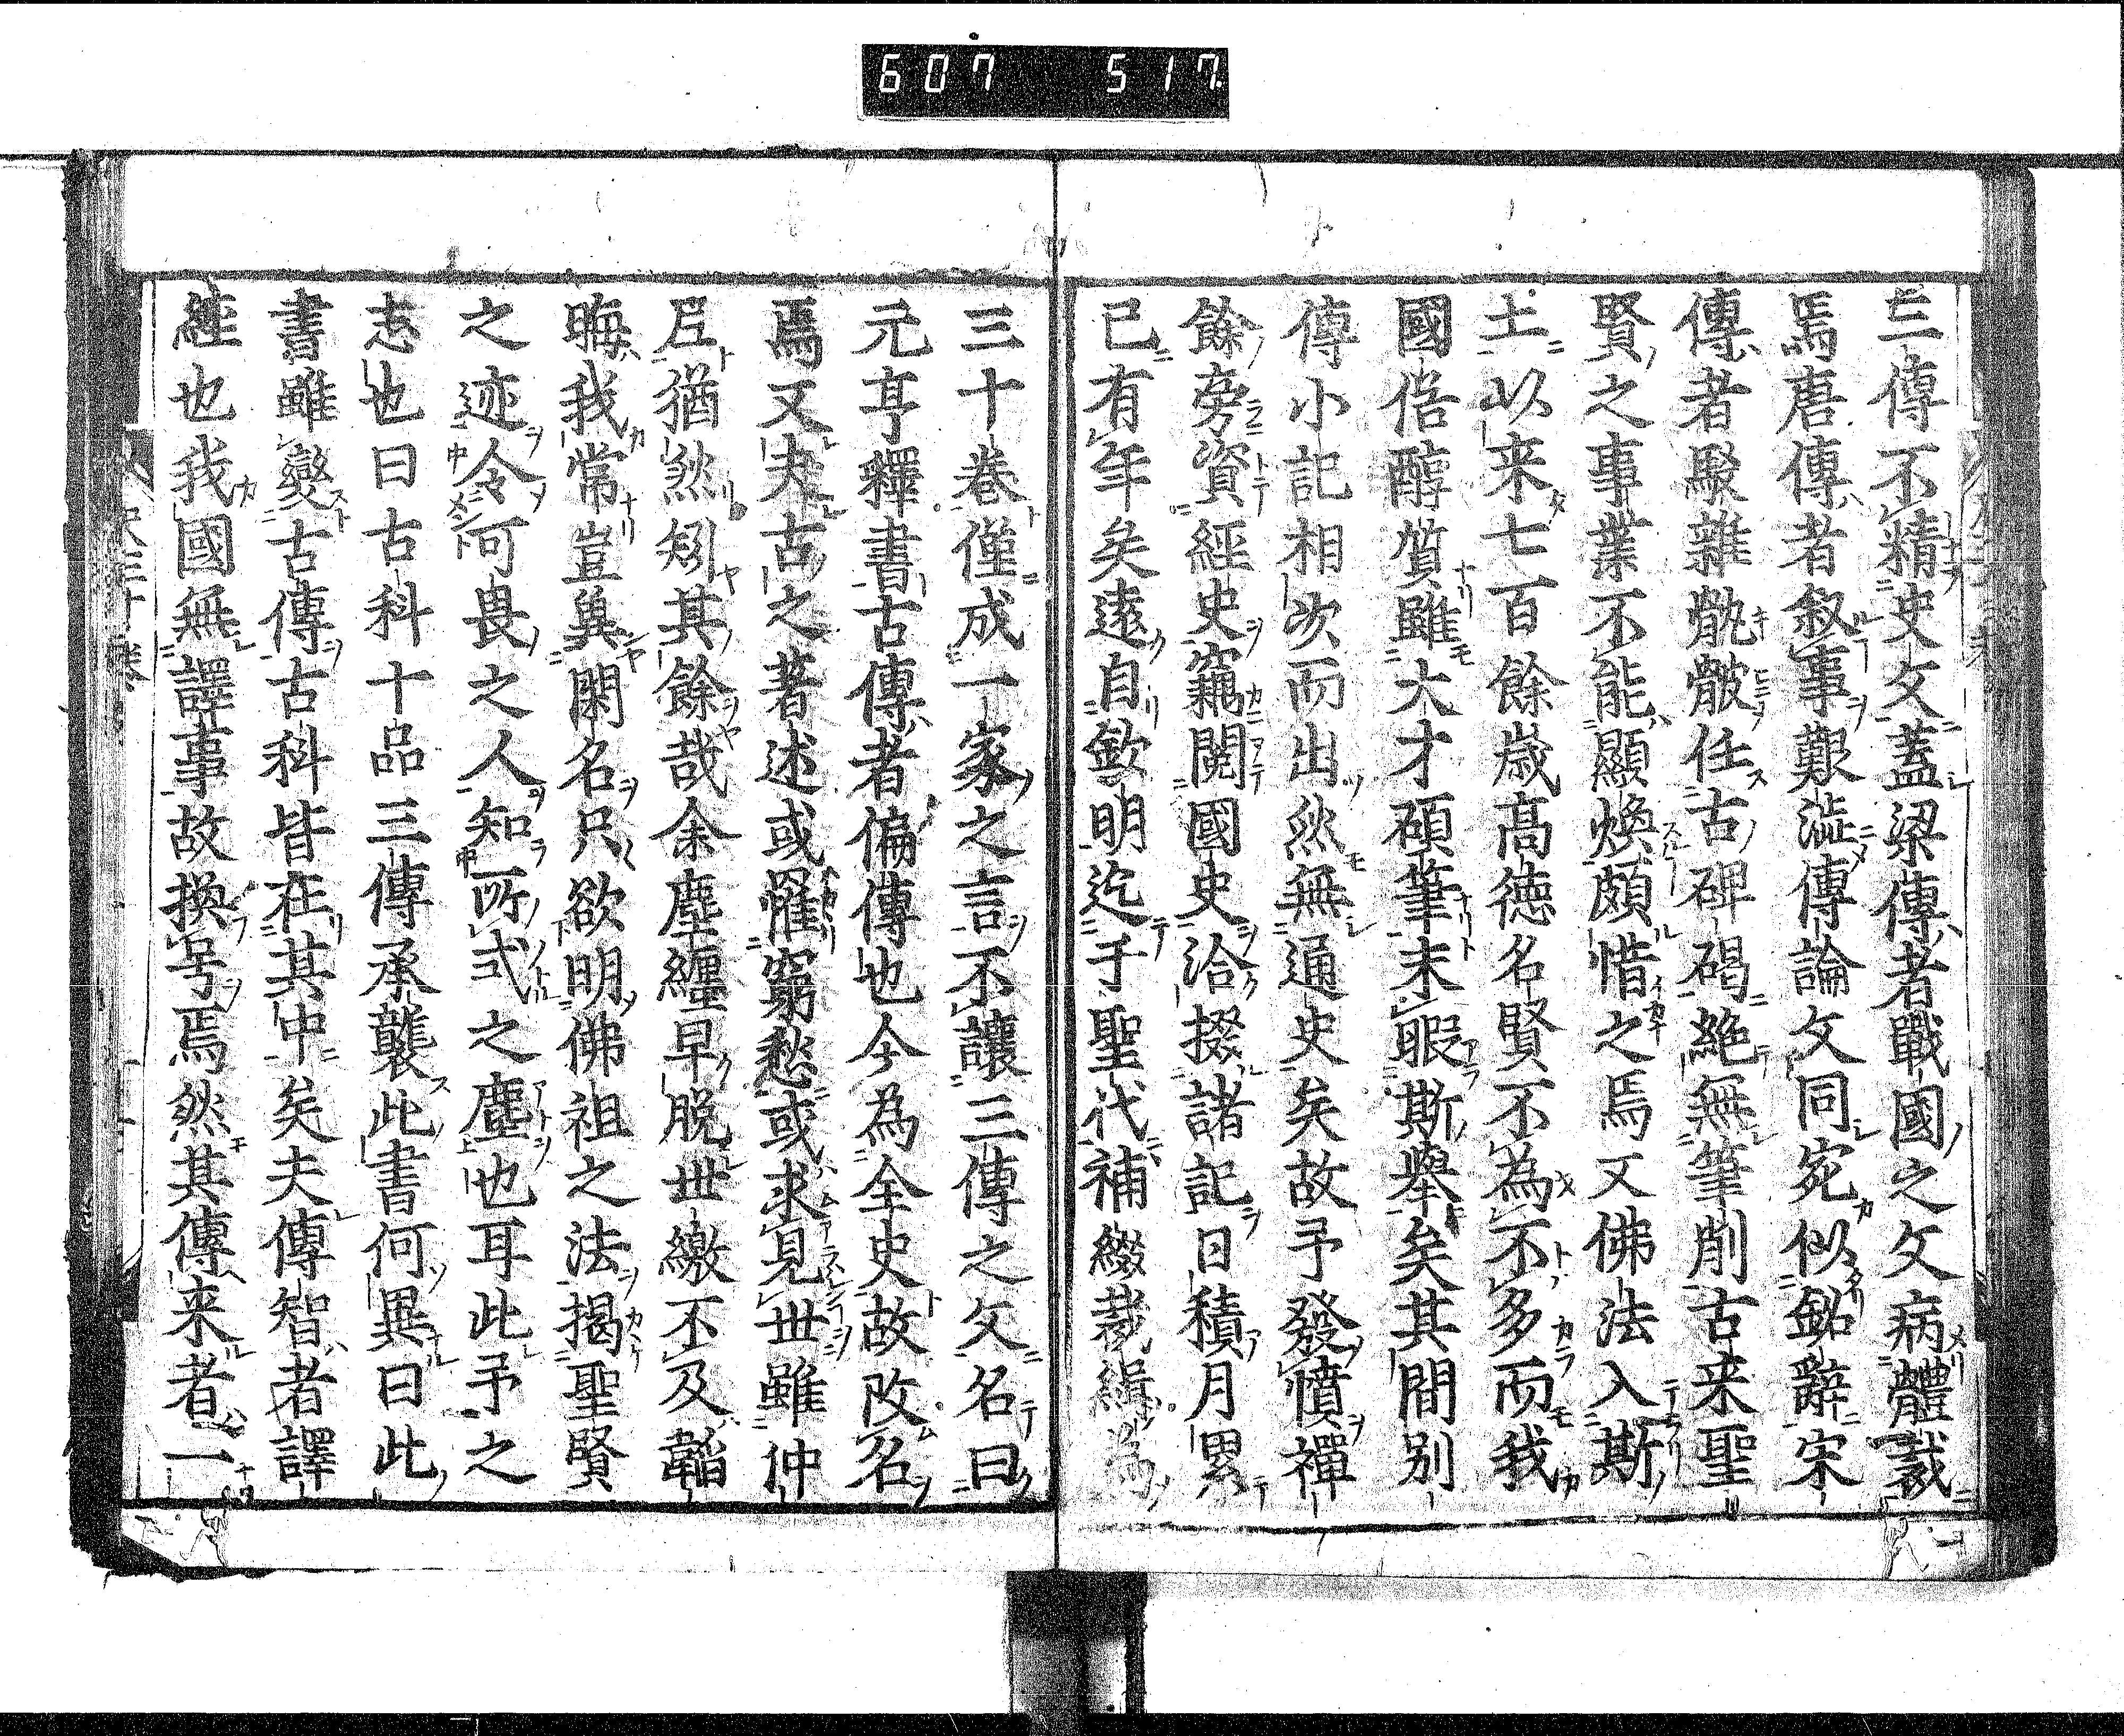 607 517
三傳不精史文蓋梁傳者戰國之文病體裁
焉唐傳者叙事艱澁傳論文同宛似銘辭宋
傳者聚雜骫骳任古碑碣絶無筆削古来聖
賢之事業不能顯煥頗惜之焉又佛法入斯
土以来七百餘歳高徳名賢不為不多而我
國俗醇質雖大才碩筆未暇斯舉矣其間別
傳小記相次而出然無通史矣故予發憤禪
餘旁資經史竊閲國史洽掇諸記日積月累
已有年矣遠自欽明迄于聖代補綴裁緝為
三十巻僅成一家之言不讓三傳之文名曰
元亨釋書古傳者偏傳也今為全史故改名
焉又夫古之著述或罹窮愁或求見世雖仲
尼猶然矧其餘哉余塵纏早脱世繳不及韜
晦我常豈糞閑名只欲明佛祖之法掲聖賢
之迹令可畏之人知所式之塵也耳此予之
志也曰古科十品三傳承襲此書何異曰此
書雖變古傳古科皆在其中矣夫傳智者譯
經也我國無譯事故換号焉然其傳来者一